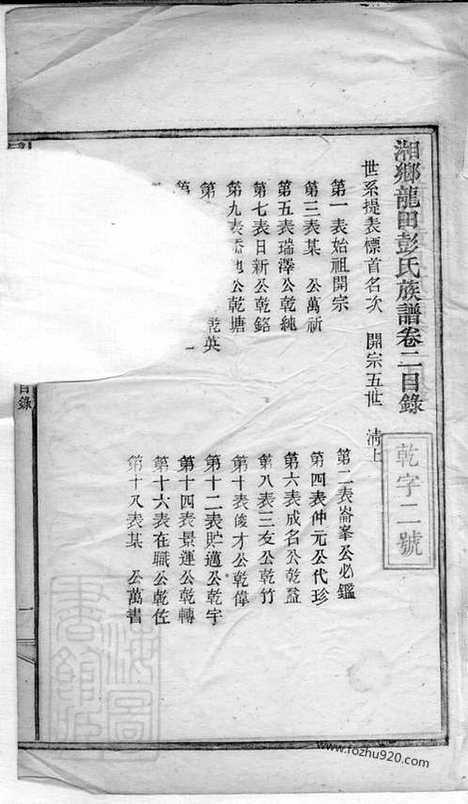 湘鄉龍田彭氏族譜卷二目錄
乾字二號
世系提表標首名次 開宗五世 清上
第一表始祖開宗
第二表崙峯公必鑑
第三表某 公萬祈
第四表仲元公代珍
第五表瑞澤公乾純
第六表成名公乾益
第七表日新公乾銘
第八表三友公乾竹
第九表 公乾塘
第十表俊才公乾偉
第 乾英
第十二表貯邁公乾宇
第
第十四表景運公乾轉
第十六表在職公乾佐
第十八表某 公萬書
目錄
www.fozhu920.com